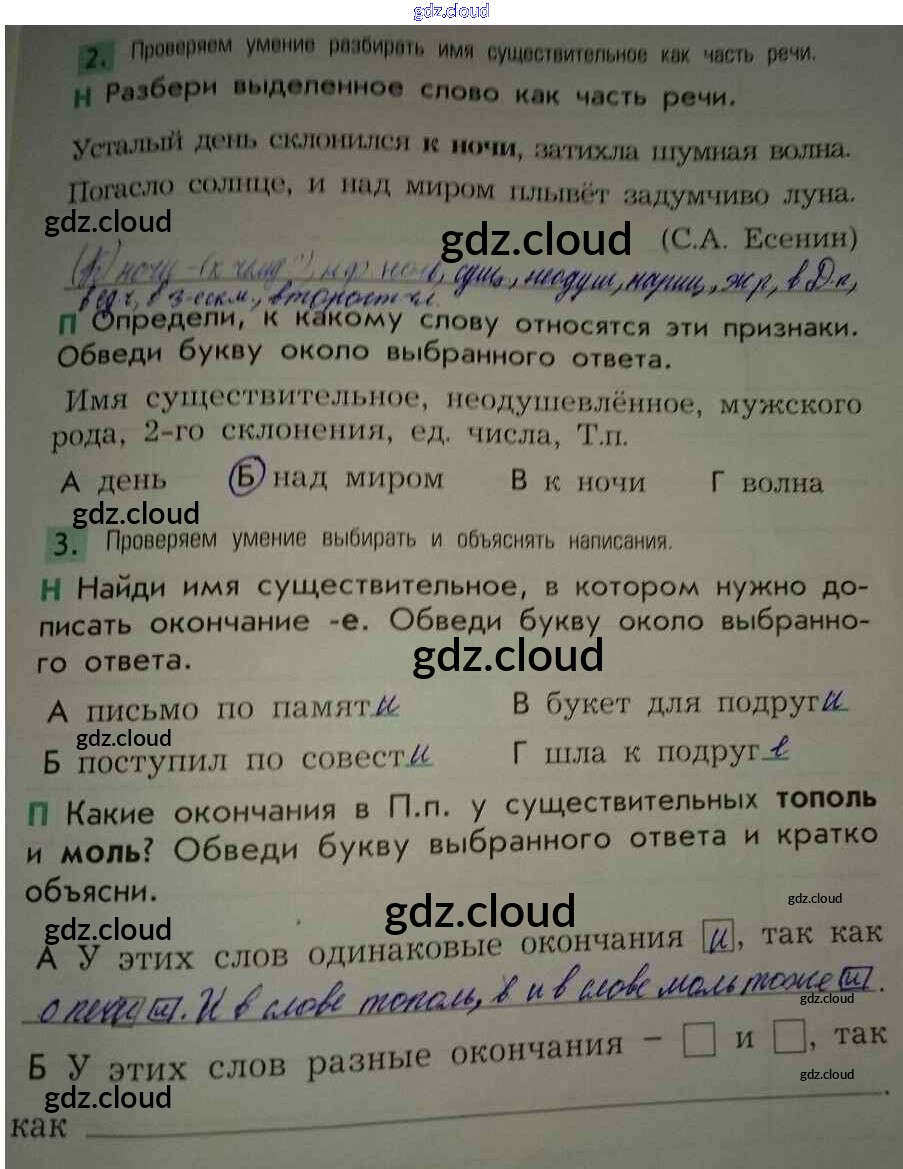 gdz.cloud
2. Проверяем умение разбирать имя существительное как часть речи.
Н Разбери выделенное слово как часть речи.
Усталый день склонился к ночи, затихла шумная волна.
Погасло солнце, и над миром плывёт задумчиво луна.
gdz.cloud
gdz.cloud
(С.А. Есенин)
сущ., неодуш., нариц., ж.р., в Д.п.,
в ед.ч., в 3-ем скл.,
П Определи, к какому слову относятся эти признаки.
Обведи букву около выбранного ответа.
Имя существительное, неодушевлённое, мужского
рода, 2-го склонения, ед. числа, Т.п.
А день Б над миром В к ночи Г волна
gdz.cloud
3. Проверяем умение выбирать и объяснять написания.
Н Найди имя существительное, в котором нужно до-
писать окончание -е. Обведи букву около выбранно-
го ответа.
gdz.cloud
А письмо по памяти В букет для подруги
gdz.cloud
Б поступил по совести Г шла к подруге
П Какие окончания в П.п. у существительных тополь
и моль? Обведи букву выбранного ответа и кратко
объясни.
gdz.cloud
gdz.cloud
gdz.cloud
А У этих слов одинаковые окончания и, так как
И в слове тополь, и в слове моль тоже и.
gdz.cloud
Б У этих слов разные окончания – и , так
gdz.cloud
gdz.cloud
как